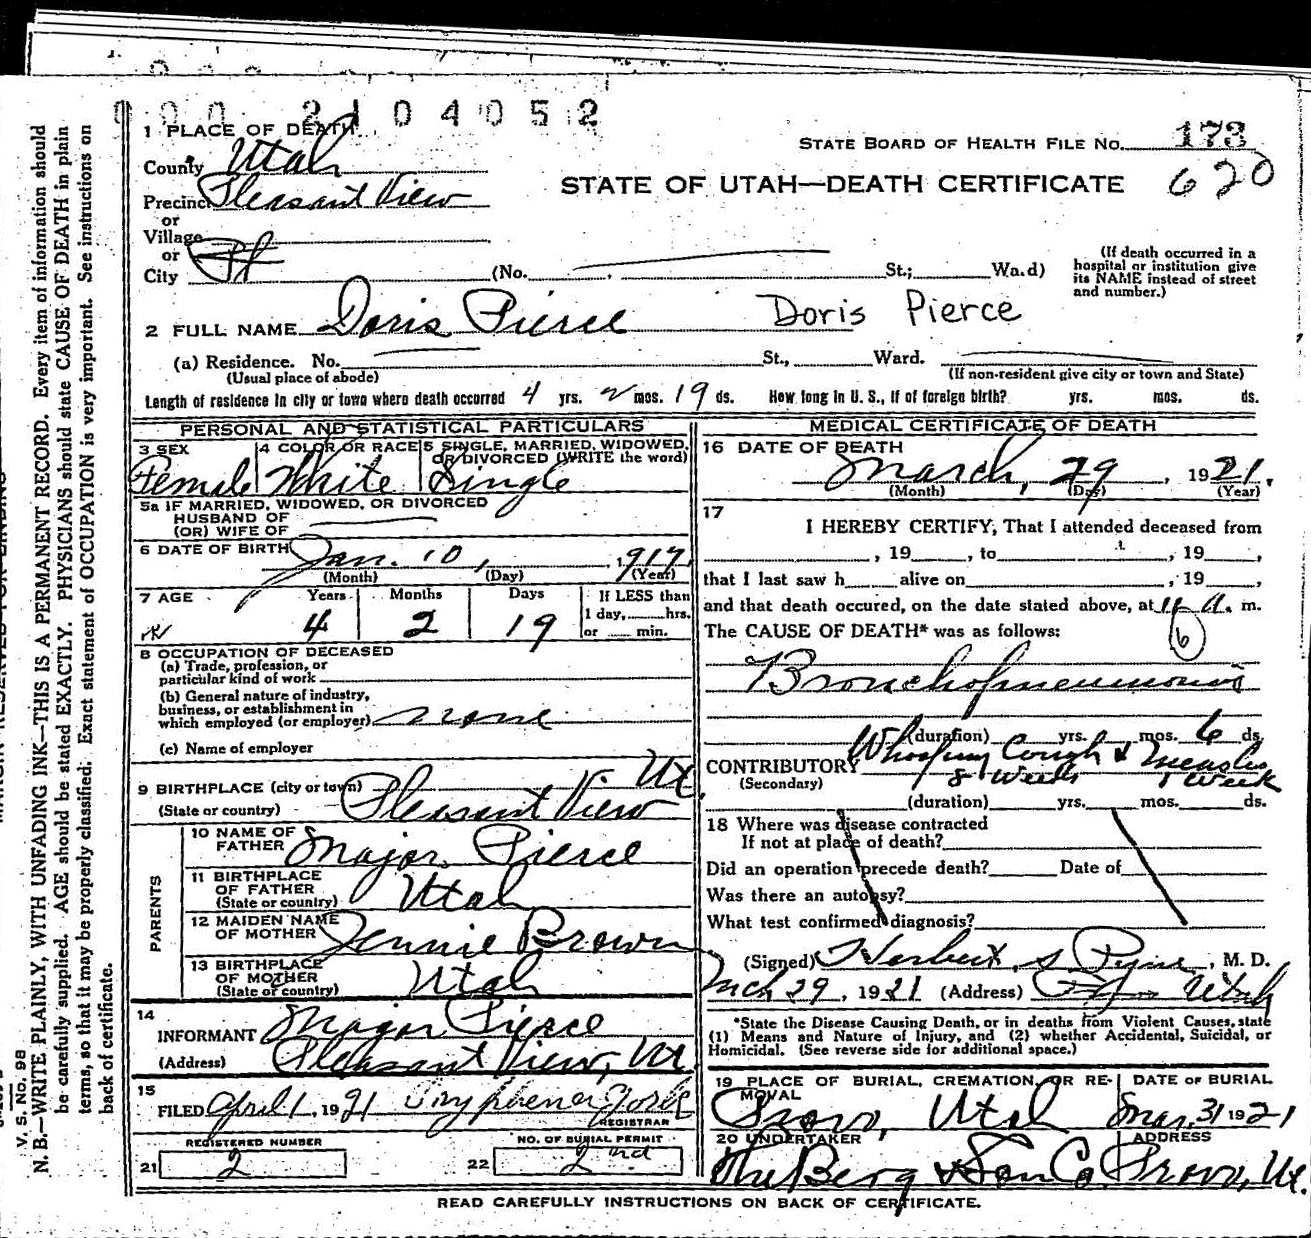 2104052
1 PLACE OF DEATH
STATE BOARD OF HEALTH FILE No. 173
County Utah
STATE OF UTAH—DEATH CERTIFICATE 620
Precinct Pleasant View
or
Village
or
City
(No. St.; Wa.d)
(If death occurred in a
hospital or institution give
its NAME instead of street
and number.)
2 FULL NAME Doris Pierce Doris Pierce
(a) Residence. No. St., Ward.
(Usual place of abode) (If non-resident give city or town and State)
Length of residence in city or town where death occurred 4 yrs. 2 mos. 19 ds. How long in U. S., if of foreign birth? yrs. mos. ds.
PERSONAL AND STATISTICAL PARTICULARS
3 SEX 4 COLOR OR RACE 5 SINGLE, MARRIED, WIDOWED,
OR DIVORCED (WRITE the word)
Female White Single
5a IF MARRIED, WIDOWED, OR DIVORCED
HUSBAND OF
(OR) WIFE OF
6 DATE OF BIRTH Jan. 10, 1917
(Month) (Day) (Year)
7 AGE Years Months Days If LESS than
1 day, hrs.
4 2 19 or min.
8 OCCUPATION OF DECEASED
(a) Trade, profession, or
particular kind of work
(b) General nature of industry,
business, or establishment in
which employed (or employer) none
(c) Name of employer
9 BIRTHPLACE (city or town) Ut
(State or country) Pleasant View
PARENTS
10 NAME OF
FATHER Major Pierce
11 BIRTHPLACE
OF FATHER
(State or country) Utah
12 MAIDEN NAME
OF MOTHER Jennie Brown
13 BIRTHPLACE
OF MOTHER
(State or country) Utah
14
INFORMANT Major Pierce
(Address) Pleasant View, Ut
15
FILED April 1, 1921 York
REGISTRAR
REGISTERED NUMBER NO. OF BURIAL PERMIT
21 2 22 2nd
MEDICAL CERTIFICATE OF DEATH
16 DATE OF DEATH
March, 29, 1921.
(Month) (Day) (Year)
17
I HEREBY CERTIFY, That I attended deceased from
, 19 , to , 19 ,
that I last saw h alive on , 19 ,
and that death occured, on the date stated above, at a. m.
The CAUSE OF DEATH* was as follows: 6
Bronchopneumonia
(duration) yrs. mos. 6 ds.
CONTRIBUTORY Whooping Cough & Measles
(Secondary) 8 Weeks 1 Week
(duration) yrs. mos. ds.
18 Where was disease contracted
If not at place of death?
Did an operation precede death? Date of
Was there an autopsy?
What test confirmed diagnosis?
(Signed) Herbert S Pyne, M. D.
Mch 29, 1921 (Address) Provo Utah
*State the Disease Causing Death, or in deaths from Violent Causes, state
(1) Means and Nature of Injury, and (2) whether Accidental, Suicidal, or
Homicidal. (See reverse side for additional space.)
19 PLACE OF BURIAL, CREMATION, OR RE-
MOVAL DATE OF BURIAL
Provo, Utah Mar, 31 1921
20 UNDERTAKER ADDRESS
The Berg & Son Co. Provo, Ut.
READ CAREFULLY INSTRUCTIONS ON BACK OF CERTIFICATE.
V. S. No. 98
N. B.—WRITE PLAINLY, WITH UNFADING INK—THIS IS A PERMANENT RECORD. Every item of information should
be carefully supplied. AGE should be stated EXACTLY. PHYSICIANS should state CAUSE OF DEATH in plain
terms, so that it may be properly classified. Exact statement of OCCUPATION is very important. See instructions on
back of certificate.